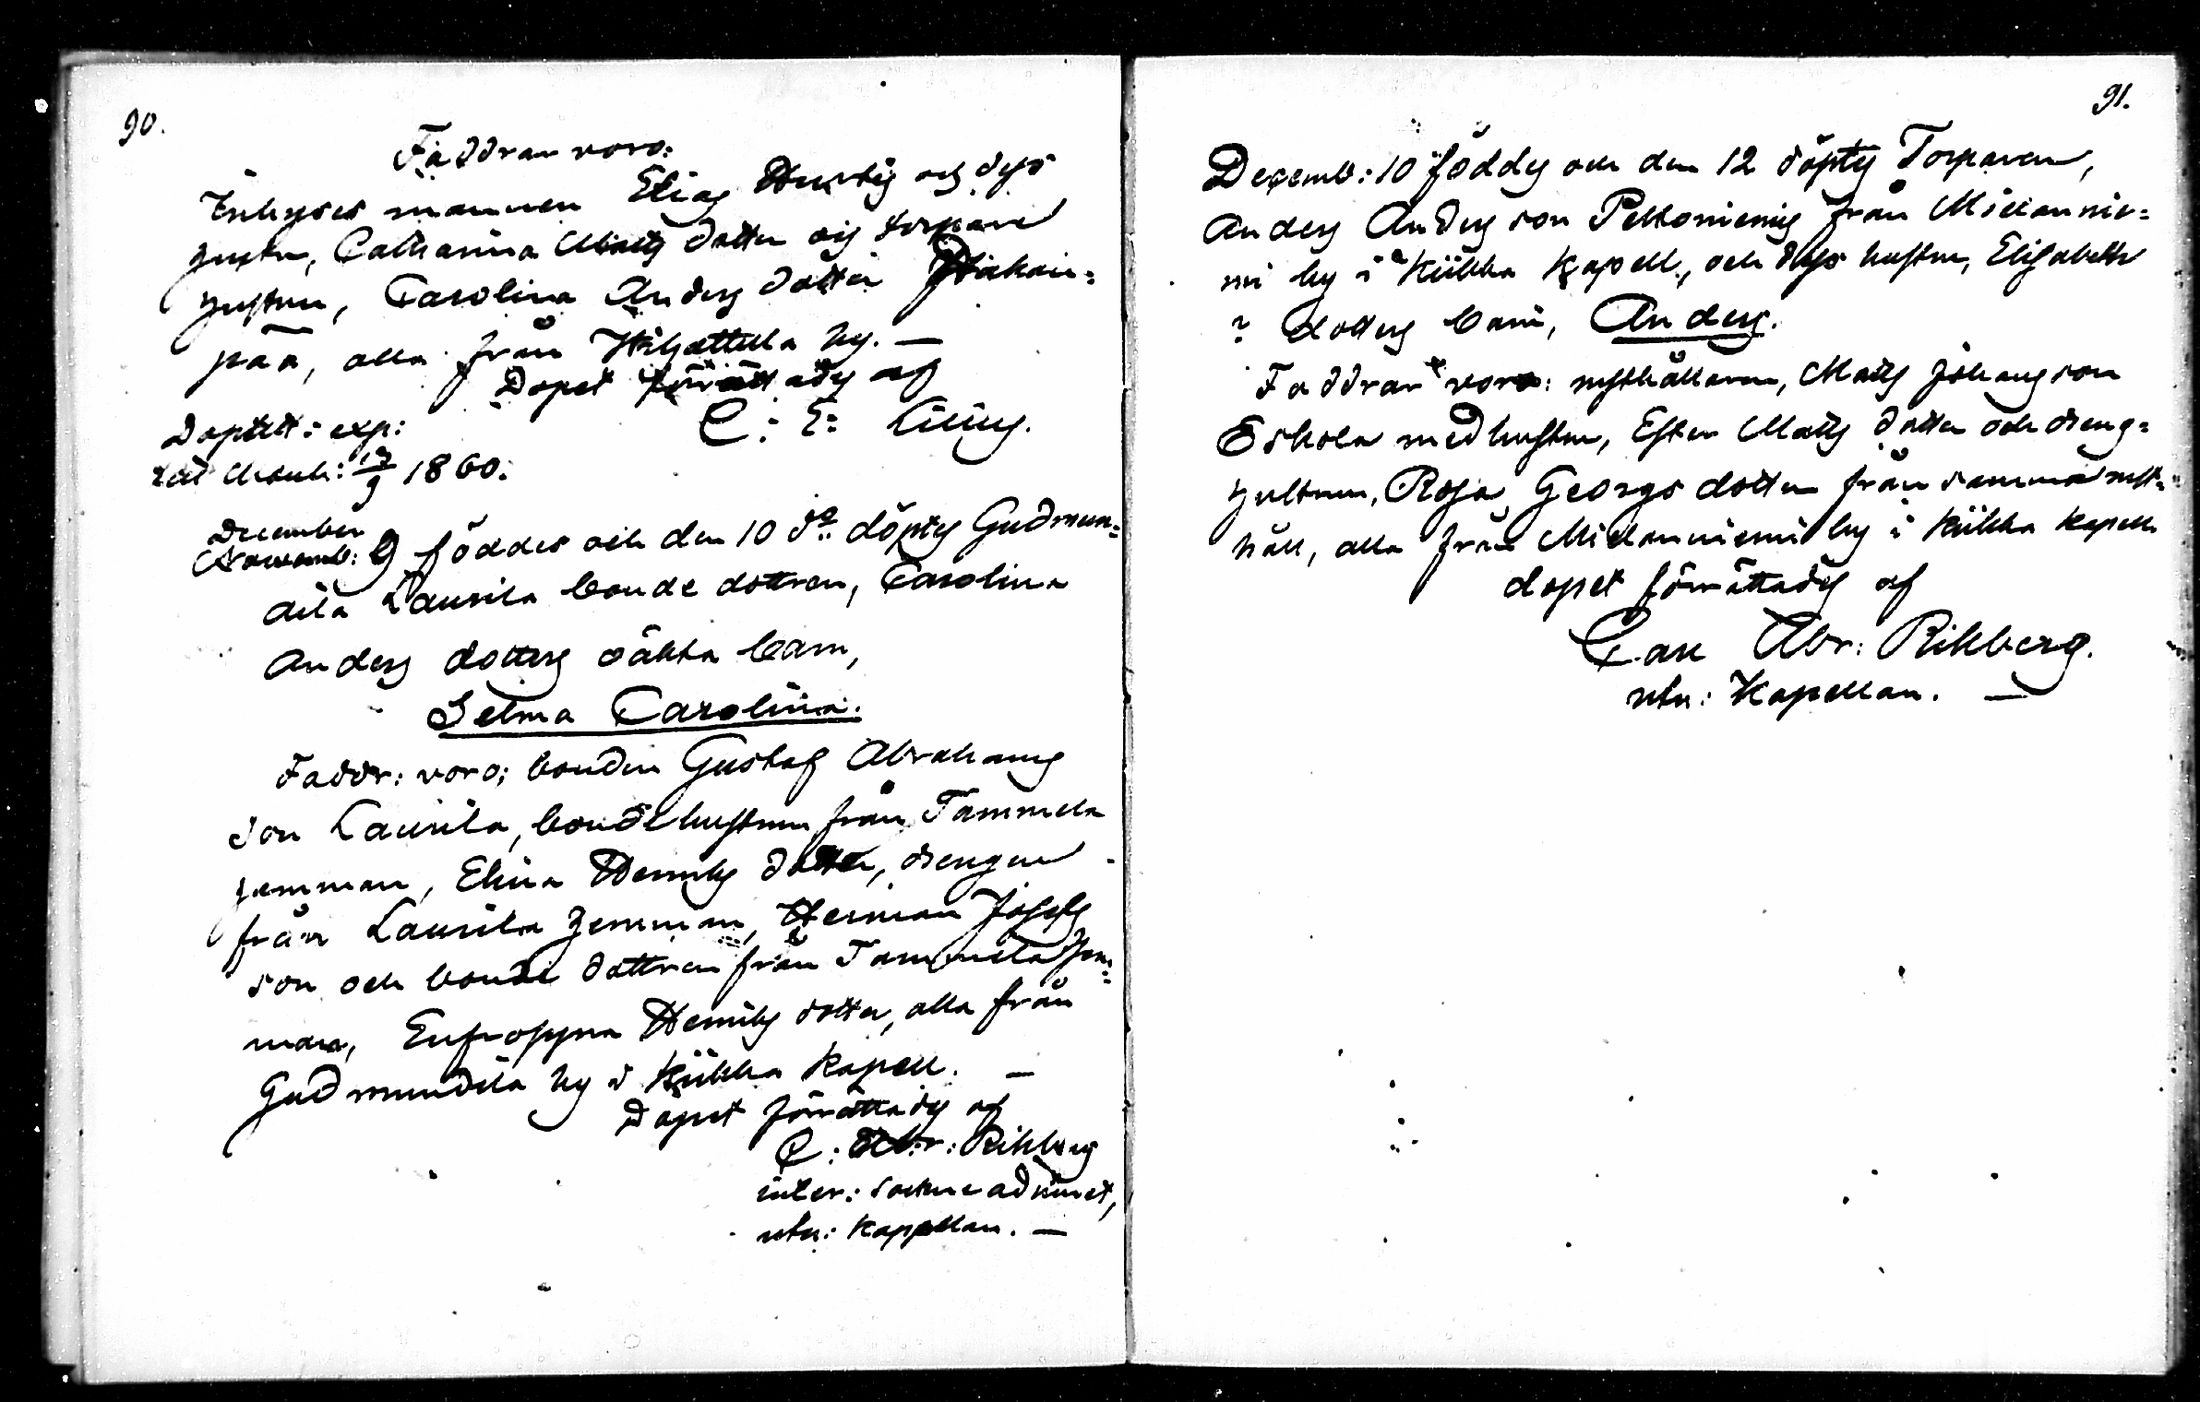 90.
Faddrar voro:
Inhyses mannen Elias Hurtig och dess
hustru, Catharina Matts dotter och torpare
hustrun, Carolina Anders dotter Hiakain=
pää, alla från Wiljattula by. —
Dopet förrättades af
C: E: Lilius.
Dopatt: exp:
1860.
December
Novemb: 9 föddes och den 10 do döptes Gudmun=
dila Laurila bonde dottren, Carolina
Anders dotters oäkta barn,
Selma Carolina.
Faddr: voro; bonden Gustaf Abrahams
son Laurila, bondehustrun från Tammela
hemman, Elina Henriks dotter, drengen
från Laurila hemman, Herman Josefs
son och bonde dottren från Tammela hem=
man, Eufrosyna Henriks dotter, alla från
Gudmundila by i Kiikka Kapell. —
Dopet förrättades af
C: Abr: Rikberg
inter: sockne adjunct,
utn: Kappellan. —
91.
Decemb: 10 föddes och den 12 döptes Torparen,
Anders Anders son Peltoniemis från Mielannie=
mi by i Kiikka Kapell, och dess hustru, Elisabeth
? dotters barn, Anders.
Faddrar voro: rusthållaren, Matts Johans son
Eskola med hustru, Ester Matts dotter och dreng=
hustrun, Rosa Georgs dotter från samma rust=
håll, alla från Mielanniemi by i Kiikka Kapell
dopet förrättades af
Carl Abr: Rikberg.
utn: Kapellan. —